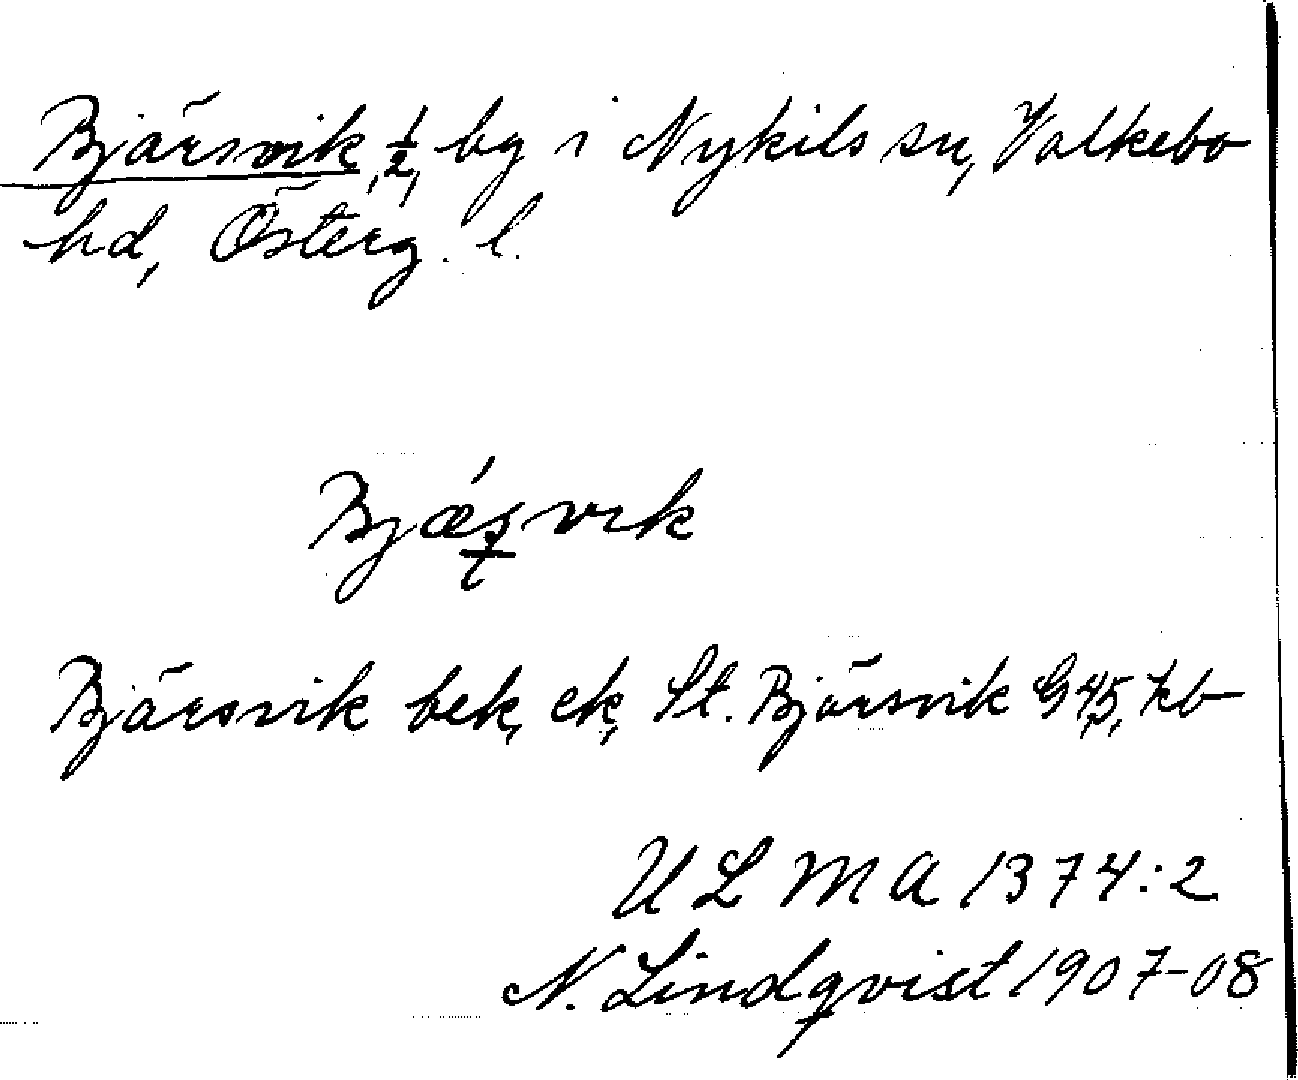 Bjärsvik, ½, by i Nykils sn, Valkebo
hd, Österg. l.
Bjǽs̱vik
Bjärsvik bek, ek, St. Bjärsvik G 45, kb
ULMA 1374:2
N. Lindqvist 1907-08